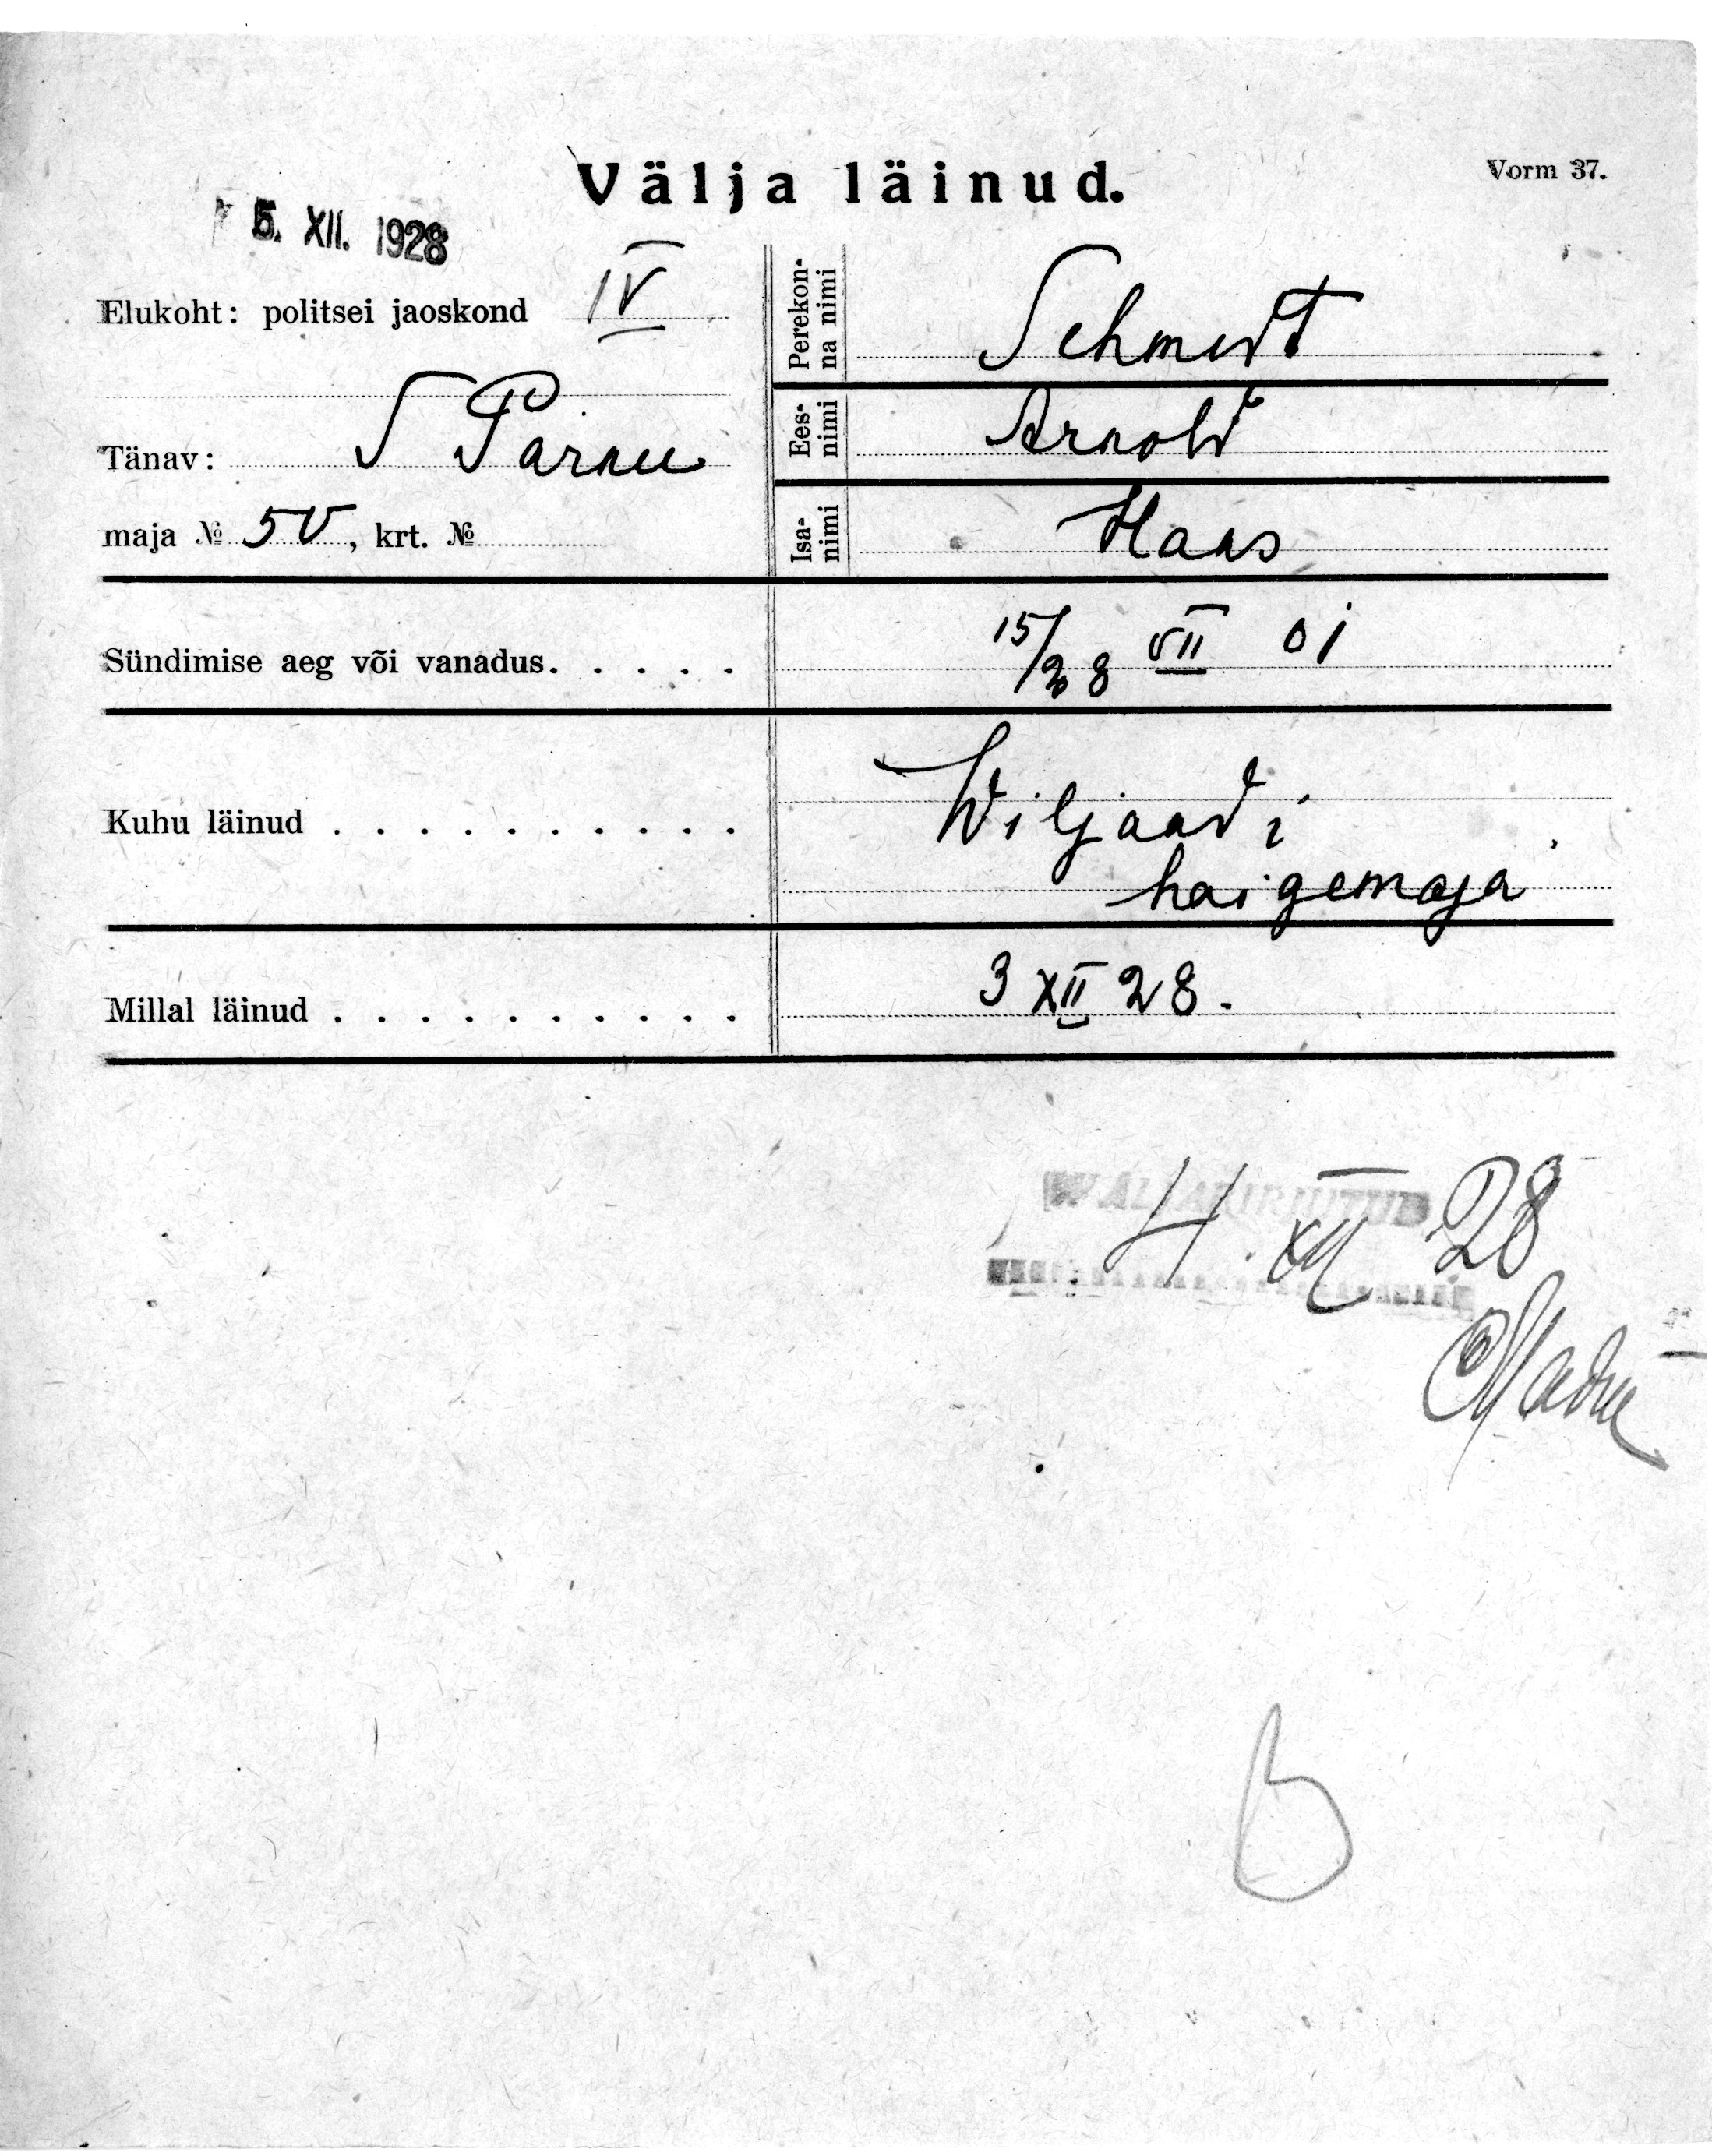 Välja läinud.
Vorm 37.
5. XII. 1928
Elukoht: politsei jaoskond IV
Perekonna nimi Schmidt
Tänav: S Pärnu
Eesnimi Arnold
maja № 50, krt. №
Isanimi Hans
Sündimise aeg või vanadus. . . . . 15/28 VII 01
Kuhu läinud . . . . . . . . . . Wiljandi
haigemaja
Millal läinud . . . . . . . . . . 3 XII 28.
4. XII 28
b